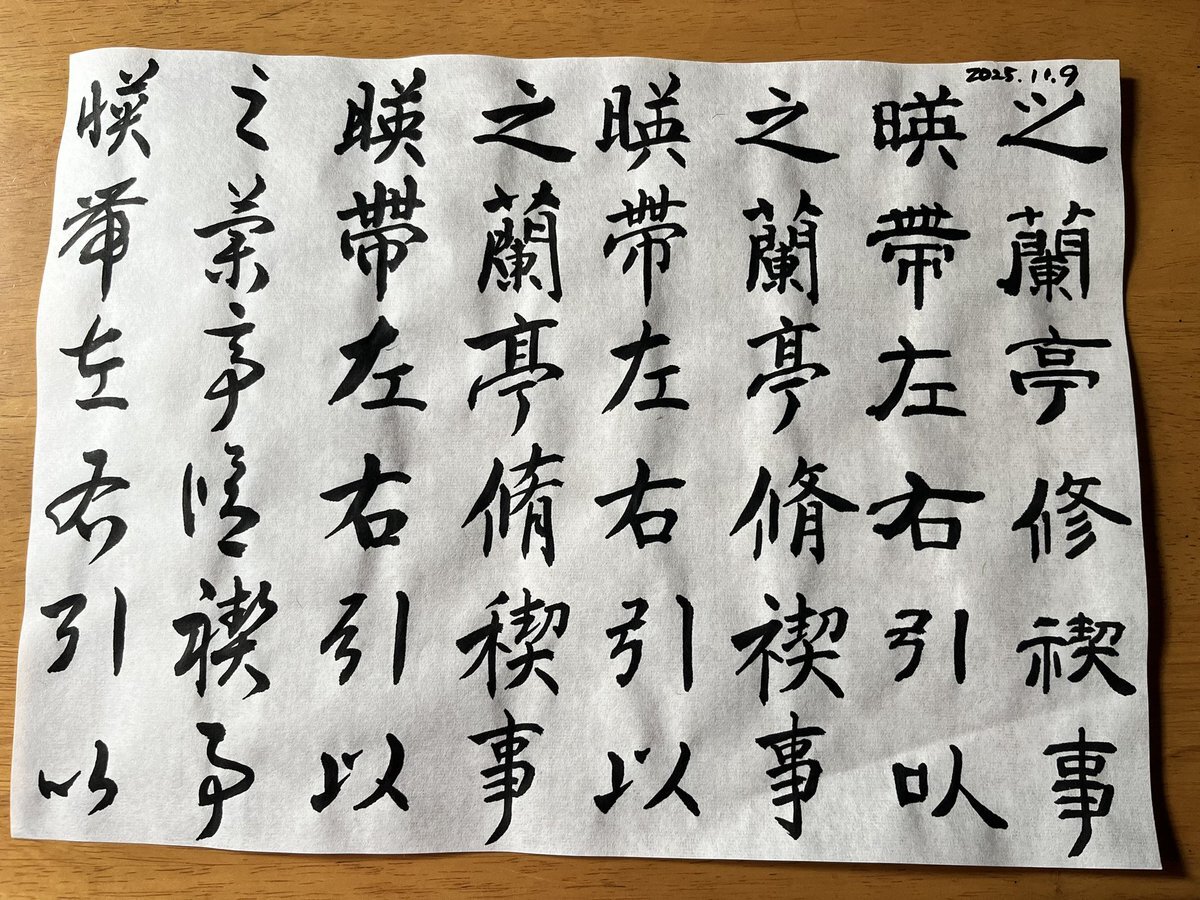 2025.11.9
之蘭亭修禊事
暎帶左右引以
之蘭亭脩禊事
暎帶左右引以
之蘭亭脩稧事
暎帶左右引以
之蘭亭脩禊事
暎帶左右引以